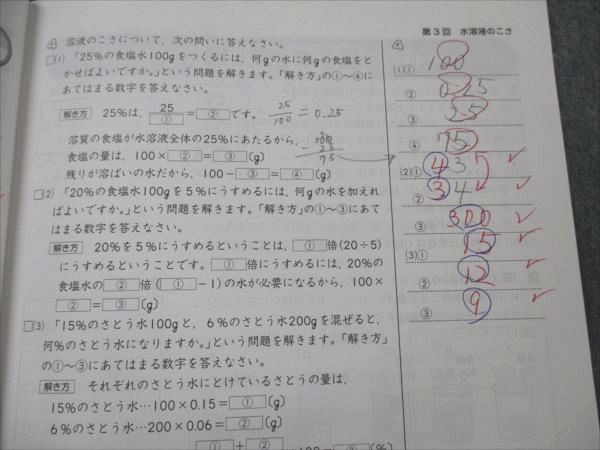 第3回 水溶液のこさ
4 溶液のこさについて，次の問いに答えなさい。
□(1) 「25％の食塩水100gをつくるには，何gの水に何gの食塩をと
かせばよいですか。」という問題を解きます。「解き方」の①～④に
あてはまる数字を答えなさい。
解き方 25％は，25/① = ② です。 25/100 = 0.25
溶質の食塩が水溶液全体の25％にあたるから，
食塩の量は，100× ② = ③ (g)
残りが溶ばいの水だから，100－ ③ = ④ (g)
100
－25
75
□(2) 「20％の食塩水100gを5％にうすめるには，何gの水を加えれ
ばよいですか。」という問題を解きます。「解き方」の①～③にあて
はまる数字を答えなさい。
解き方 20％を5％にうすめるということは， ① 倍(20÷5)
にうすめるということです。 ① 倍にうすめるには，20％の
食塩水の ② 倍( ① －1)の水が必要になるから，100×
② = ③ (g)
□(3) 「15％のさとう水100gと，6％のさとう水200gを混ぜると，
何％のさとう水になりますか。」という問題を解きます。「解き方」
の①～③にあてはまる数字を答えなさい。
解き方 それぞれのさとう水にとけているさとうの量は，
15％のさとう水…100×0.15= ① (g)
6％のさとう水…200×0.06= ② (g)
① + ②
4
(1)① 100
② 0.25
③ 25
④ 75
(2)① 4 3
② 3 4
③ 300
(3)① 15
② 12
③ 9